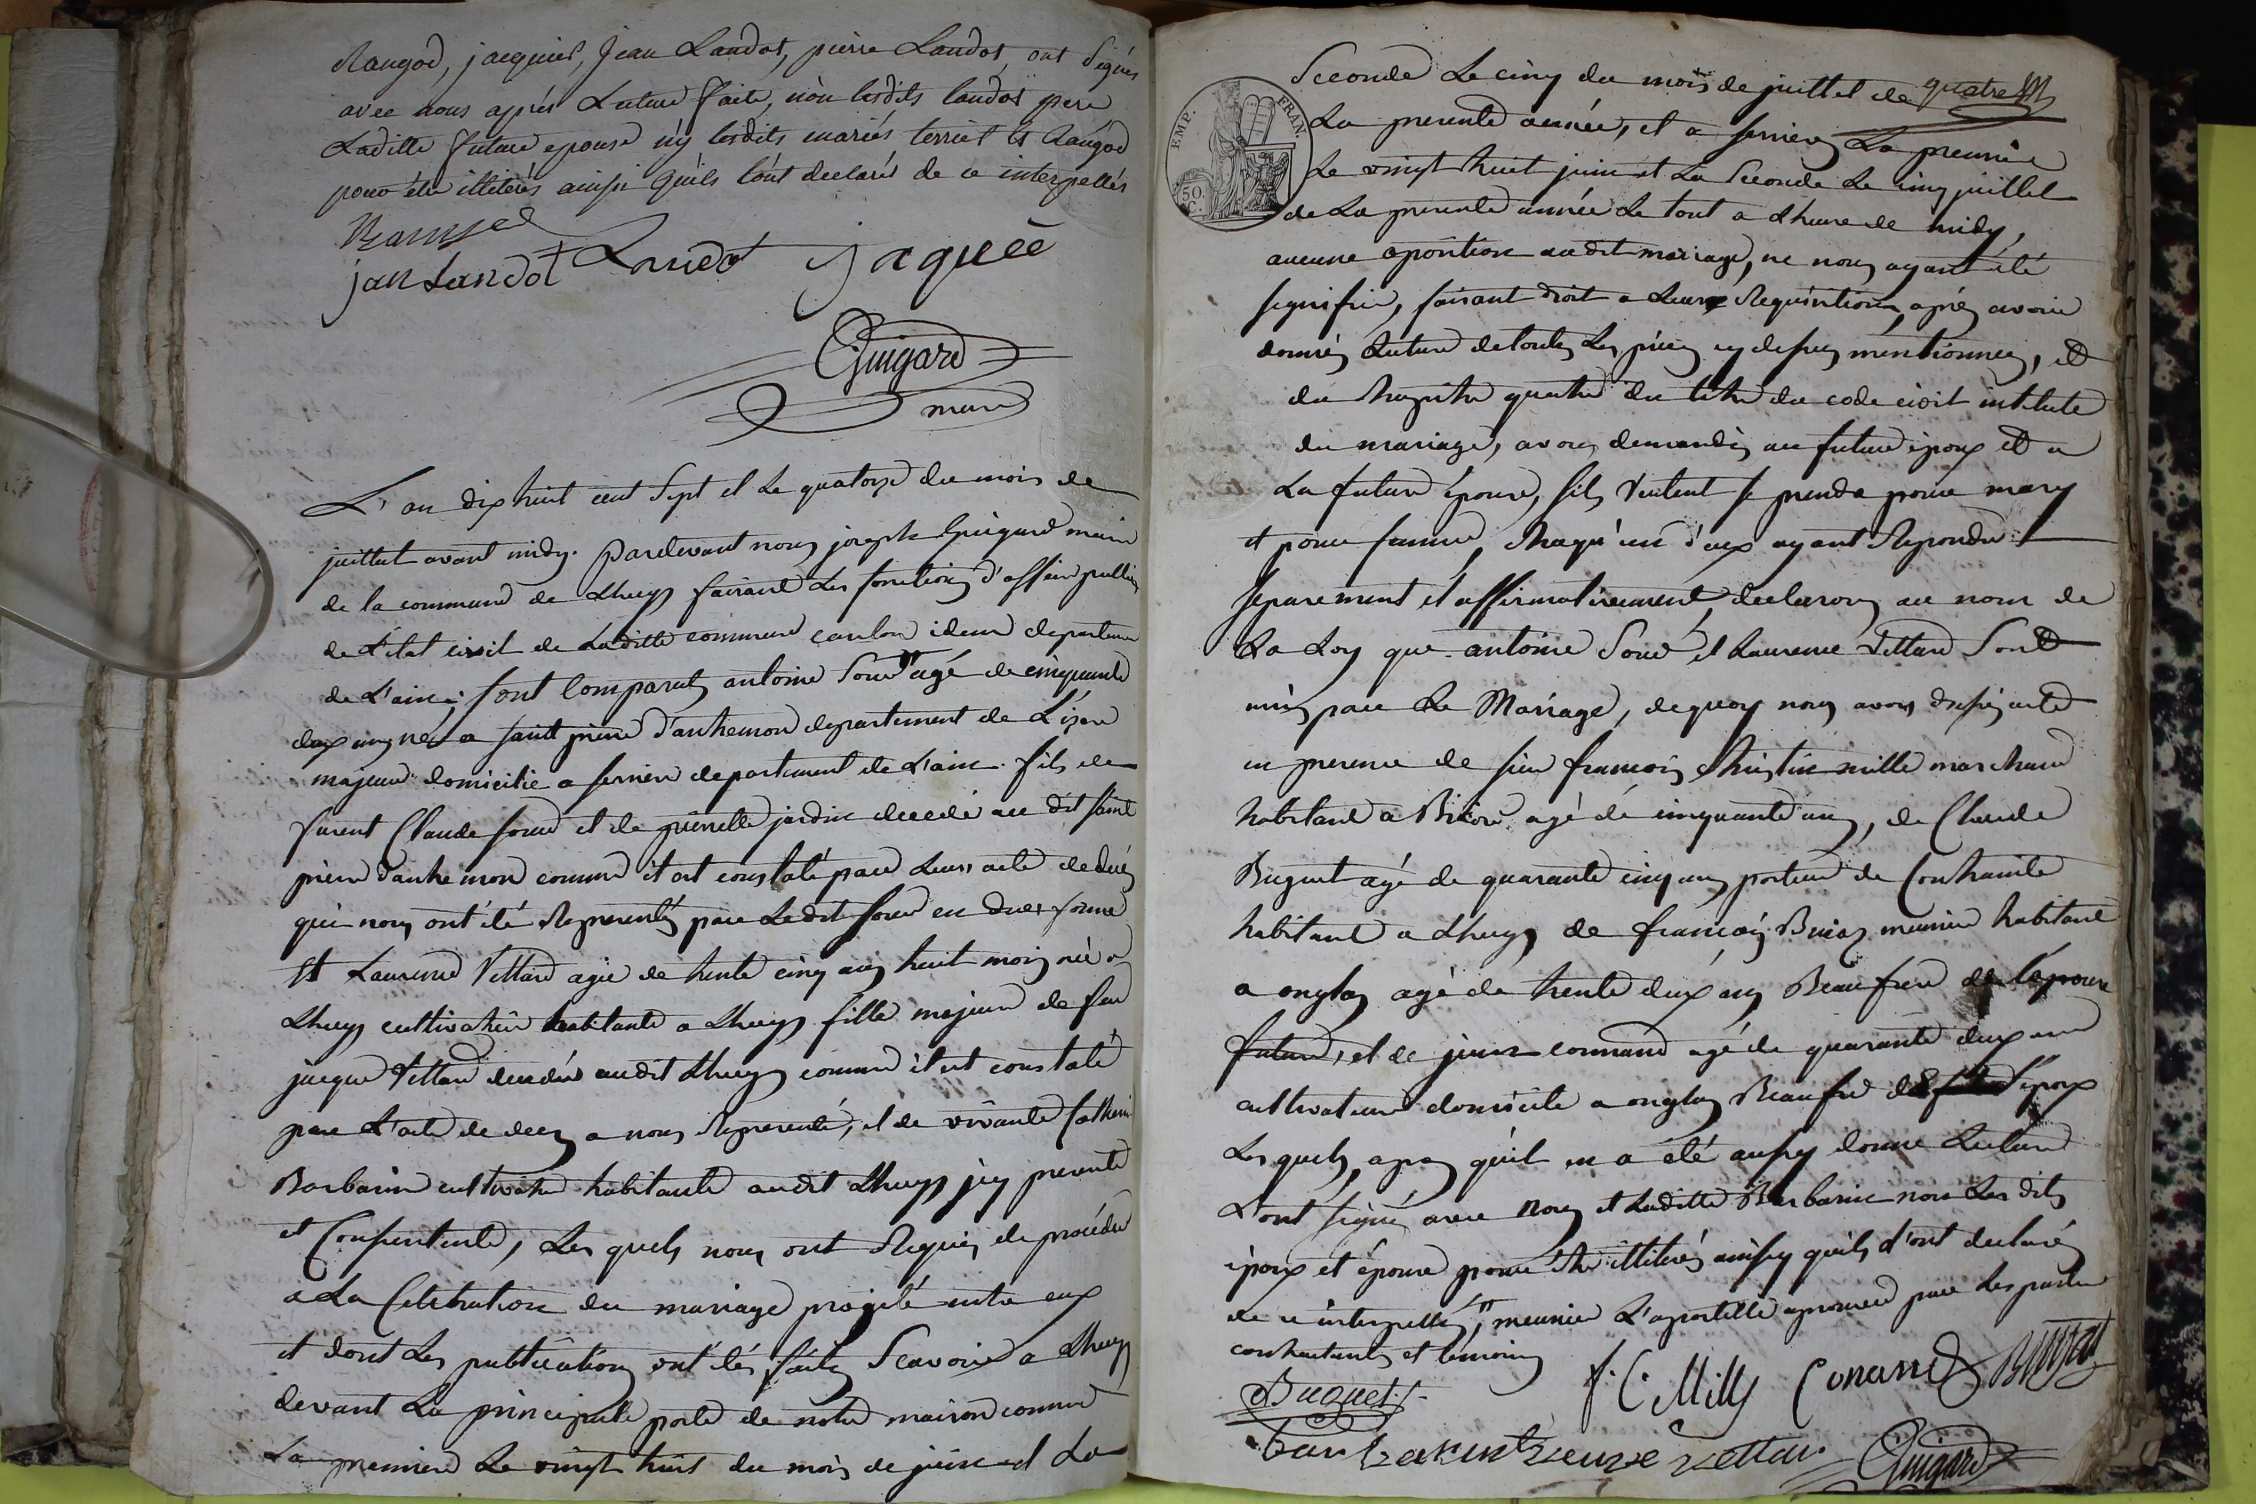 Raugod, jacquier, Jean Landot, pierre Landot, ont Signés
avec nous après Lecture faite, non lesdits landot pere
Laditte future epouse n'y lesdits mariés terrier et Raugod
pour être illitérés ainsi qu'ils l'ont declarés de ce interpellés
jan Landot Landot jaquié
Guigard
maire
L'an dix huit cent Sept et Le quatorze du mois de
juillet avant midy. Pardevant nous joseph Guigard maire
de la commune de Lhuys faisant Les fonctions d'officier public
de L'état civil de Laditte commune canton idem departement
de L'ain; sont Comparus antoine Soud agé de cinquante
deux ans né a saint pierre d'antremon departement de L'isere
majeur domicilié a serriere departement de L'ain fils de
furent Claude soud et de pierrette jardin decedé au dit saint
pierre d'antremon comme il est constaté par Leurs acte de decès
qui nous ont été Representés par Ledit soud en dues forme
Et Laurence Vettard agée de trente cinq ans huit mois née a
Lhuys cultivatrice habitante a Lhuys fille majeure de feu
jacque Vettard decedé audit Lhuys comme il est constaté
par L'acte de decez a nous Representé, et de vivante Catherine
Barbarin cultivatrice habitante audit Lhuys icy presente
et Consentente, Les quels nous ont Requis de proceder
a La Celebration du mariage projeté entre eux
et dont Les publications ont étés faites Scavoir a Lhuys
devant La principale porte de notre maison commune
La premiere Le vingt huit du mois de juin et La
EMP. FRAN.
50 C.
quatre
Seconde Le cinq du mois de juillet de
La presente année, et a serriere La premiere
Le vingt huit juin et La Seconde Le cinq juillet
de La presente année Le tout a L'heure de midy,
aucune oposition audit mariage, ne nous ayant été
signifiée, faisant droit a Leurs Requisitions, après avoir
donnés Lecture de toutes Les pieces cy dessus mentionnées, et
du chapitre quatre du titre du code civil intitulé
du mariage, avons demandés au futur époux et a
La future épouse, s'ils Veulent se prendre pour mary
et pour femme, chaqu'un d'eux ayant Repondu
separement et affirmativement, declarons au nom de
La Loy que antoine Soud et Laurence Vettard Sont
unis par Le Mariage, de quoy nous avons dressé acte
en presence de sieur francois christin mille marchand
habitant a Briord agé de cinquante ans, de Claude
Buguet agé de quarante cinq ans porteur de Contrainte
habitant a Lhuys, de francois Buiaz meunier habitant
a onglas agé de trente deux ans Beaufrere de l'épouse
future, et de jean connand agé de quarante deux ans
cultivateur domicilié a onglas Beaufrere de L'époux
Les quels, apres qu'il en a été aussy donné Lecture
L'ont signé avec Nous et Laditte Barbarin non Les dits
époux et épouse pour être illitérés ainsy qu'ils l'ont declaré
de ce interpellés, meunier L'apostille aprouvée par Les parties
contractantes et temoins
F. C. Mille Conand Buyat
Buguet
barbarin veuve vettar Guigard